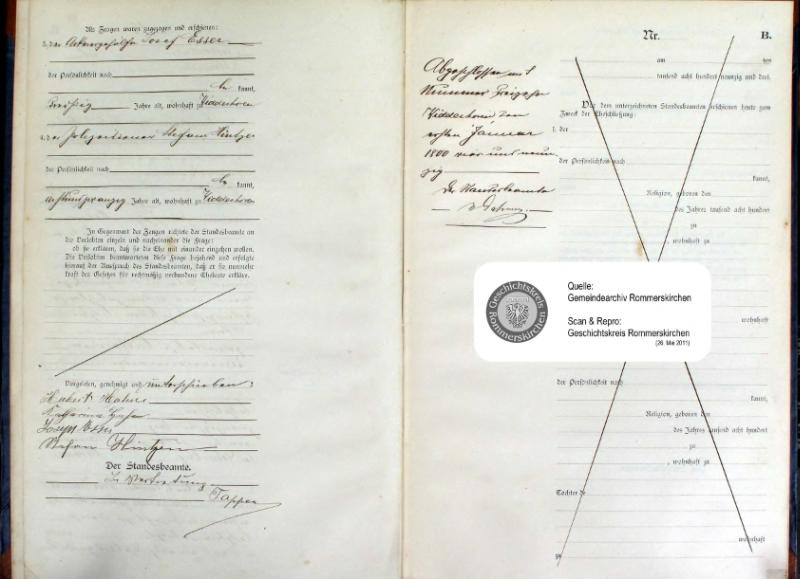 Als Zeugen waren zugezogen und erschienen:
3. der Ackergehülfe Josef Esser
der Persönlichkeit nach
kannt,
dreißig Jahre alt, wohnhaft zu
4. der Polizeidiener Stefan Hintzen
der Persönlichkeit nach
kannt,
achtundzwanzig Jahre alt, wohnhaft zu
In Gegenwart der Zeugen richtete der Standesbeamte an
die Verlobten einzeln und nacheinander die Frage:
ob sie erklären, daß sie die Ehe mit einander eingehen wollen.
Die Verlobten beantworteten diese Frage bejahend und erfolgte
hierauf der Ausspruch des Standesbeamten, daß er sie nunmehr
kraft des Gesetzes für rechtmäßig verbundene Eheleute erkläre.
Vorgelesen, genehmigt und unterschrieben:
Hubert
Katharina
Josef Esser
Stefan Hintzen
Der Standesbeamte.
In Vertretung
Tappen
Abgeschlossen mit
Nummer
den
ersten Januar
1800 vier und neun
zig
Der Standesbeamte
Nr.
B.
am ten
tausend acht hundert neunzig und drei
Vor dem unterzeichneten Standesbeamten erschienen heute zum
Zweck der Eheschließung:
1. der
der Persönlichkeit nach
kannt,
Religion, geboren den
des Jahres tausend acht hundert
zu
, wohnhaft zu
Geschichtskreis
Rommerskirchen
Quelle:
Gemeindearchiv Rommerskirchen
Scan & Repro:
Geschichtskreis Rommerskirchen
(26. Mai 2011)
wohnhaft
der Persönlichkeit nach
kannt,
Religion, geboren den
des Jahres tausend acht hundert
zu
, wohnhaft zu
Tochter de
wohnhaft
zu